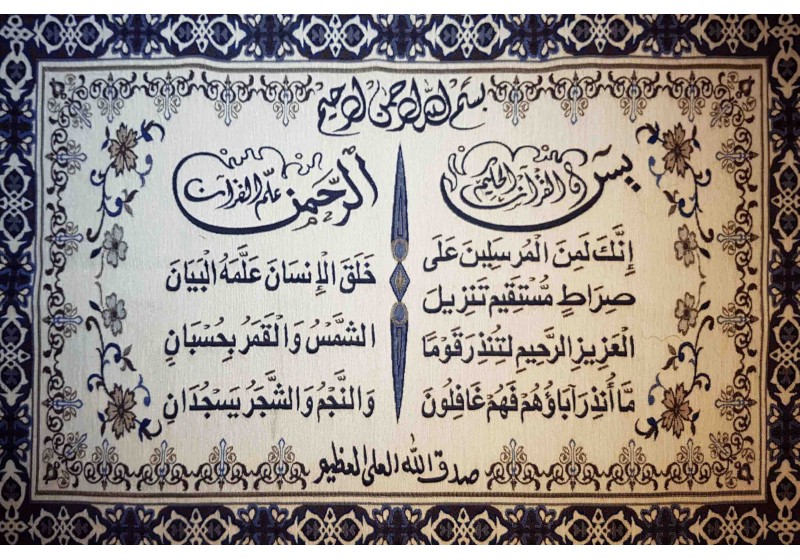 بسم الله الرحمن الرحيم
يس والقرآن الحكيم
إنَّكَ لَمِنَ الْمُرسَلِينَ عَلَى
صِرَاطٍ مُّسْتَقِيمٍ تَنزِيلَ
العَزِيزِ الرَّحِيمِ لِتُنذِرَ قَوْمًا
مَّا أُنذِرَ آبَاؤُهُمْ فَهُمْ غَافِلُونَ
الرَّحمن علم القرآن
خَلَقَ الإِنسَانَ عَلَّمَهُ الْبَيَانَ
الشَّمْسُ وَالْقَمَرُ بِحُسْبَانٍ
وَالنَّجْمُ وَالشَّجَرُ يَسْجُدَانِ
صدق الله العلى العظيم